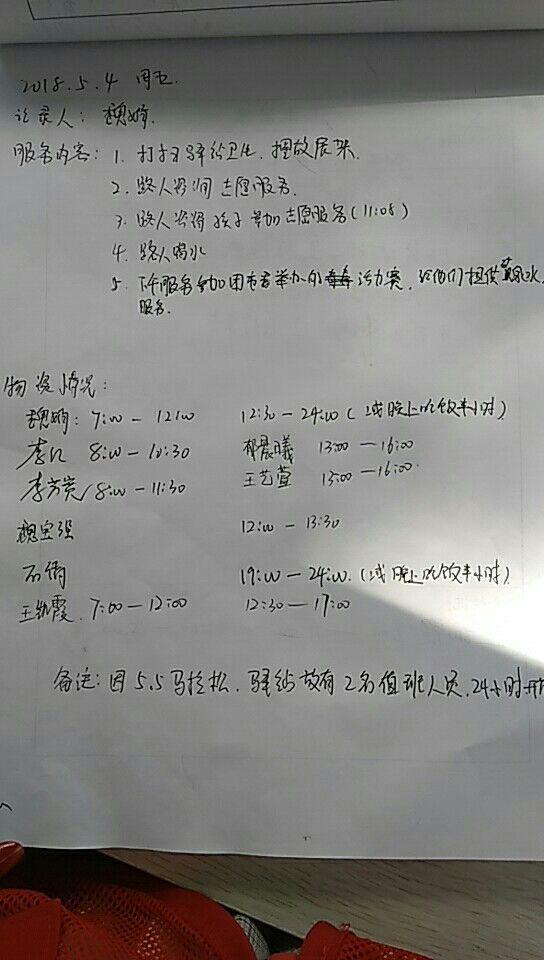 2018.5.4 周五.
记录人: 魏娇.
服务内容: 1. 打扫驿站卫生. 摆放展架.
2. 路人咨询志愿服务.
3. 路人咨询孩子参加志愿服务(11:08)
4. 路人喝水
5. 下午服务参加团市委举办的活力赛, 给他们提供饮水
服务.
物资情况:
魏娇: 7:00 - 12:00 12:30 - 24:00 (减晚上吃饭半小时)
李 8:00 - 10:30 郁晨曦 13:00 - 16:00
李芳 8:00 - 11:30 王艺萱 13:00 - 16:00.
魏宝强 12:00 - 13:30
石倩 19:00 - 24:00. (减晚上吃饭半小时)
王霞. 7:00 - 12:00 12:30 - 17:00
备注: 因5.5马拉松. 驿站故有2名值班人员. 24小时